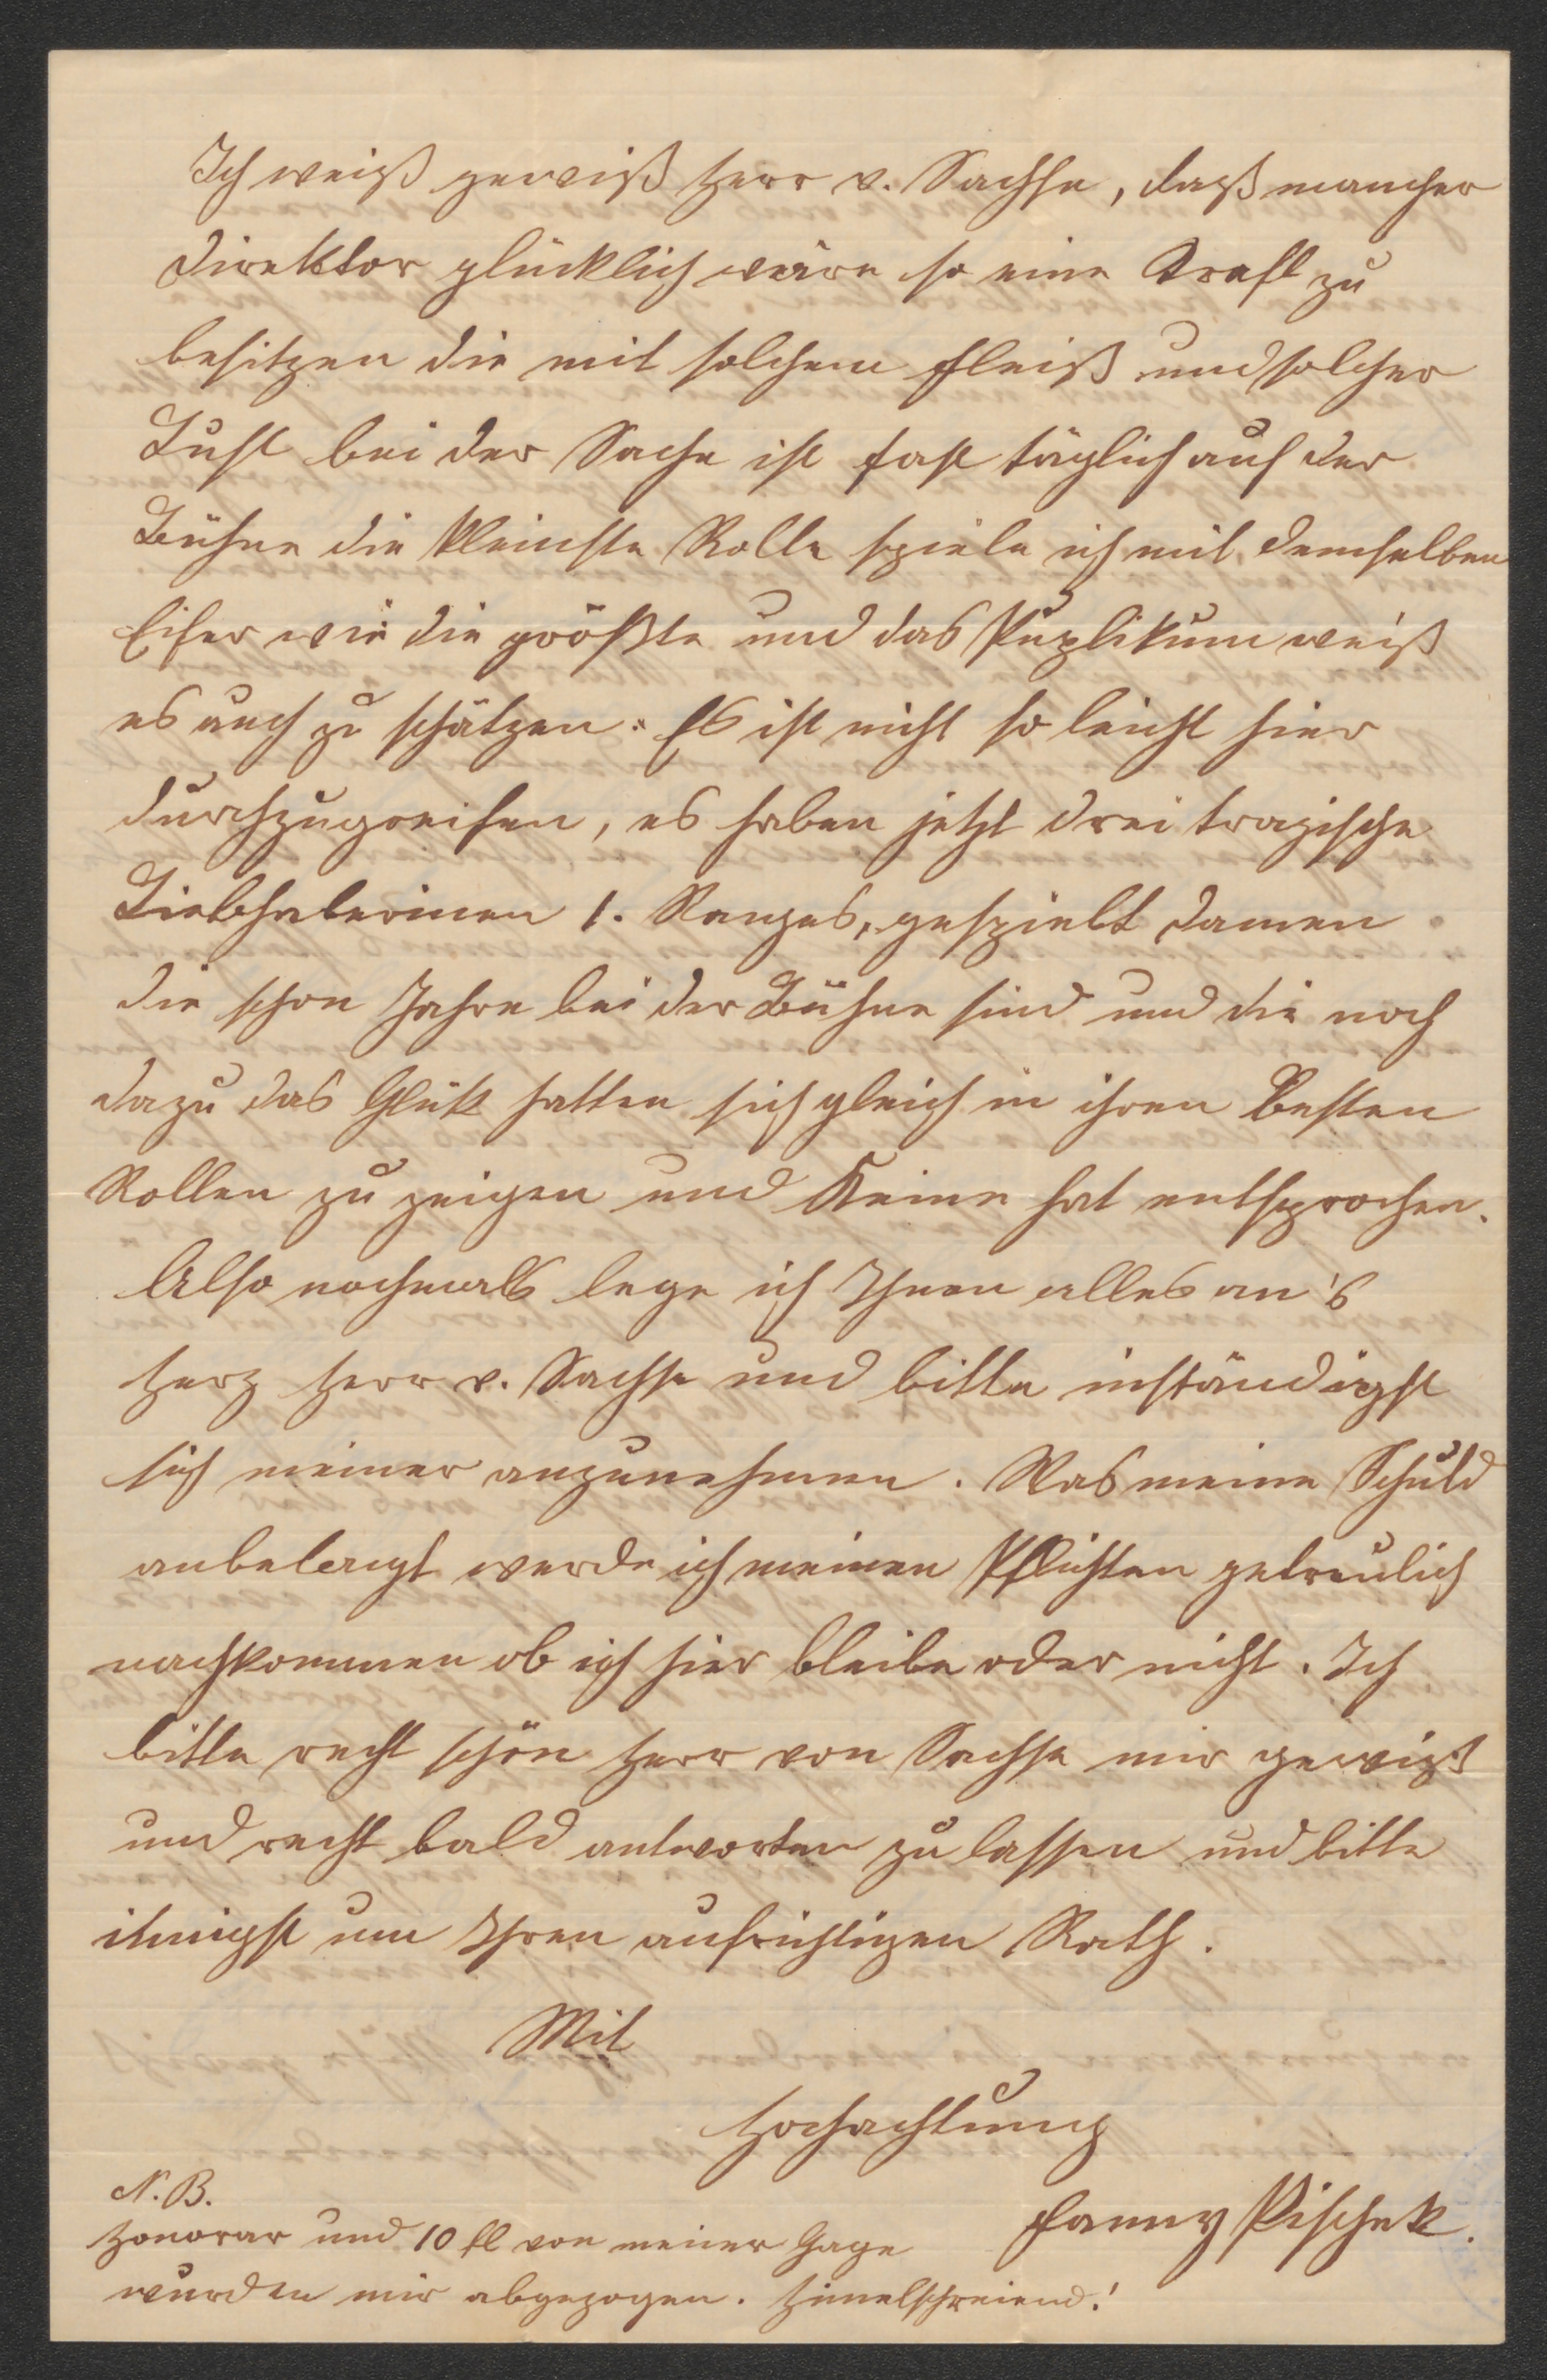 Ich weiß gewiß Herr v. Sachse, daß mancher
Direktor glücklich wäre so eine Kraft zu
besitzen die mit solchem Fleiß und solcher
Lust bei der Sache ist fast täglich auf der
Bühne die kleinste Rolle spiele ich mit demselben
Eifer wie die größte und das Puplikum weiß
es auch zu schätzen. Es ist nicht so leicht hier
durchzugreifen, es haben jetzt drei tragische
Liebhaberinen 1. Ranges, gespielt Damen
die schon Jahre bei der Bühne sind und die noch
dazu das Glük hatten sich gleich in ihren besten
Rollen zu zeigen und Keine hat entsprochen.
Also nochmals lege ich Ihnen alles an's
Herz Herr v. Sachse und bitte inständigst
sich meiner anzunehmen. Was meine Schuld
anbelangt werde ich meinen Pflichten getreulich
nachkommen ob ich hier bleibe oder nicht. Ich
bitte recht schön Herr von Sachse mir gewiß
und recht bald antworten zu lassen und bitte
innigst um Ihren aufrichtigen Rath.
Mit
Hochachtung
Fanny Pischek.
N.B.
Honorar und 10 fl von meiner Gage
wurden mir abgezogen. Himelschreiend!